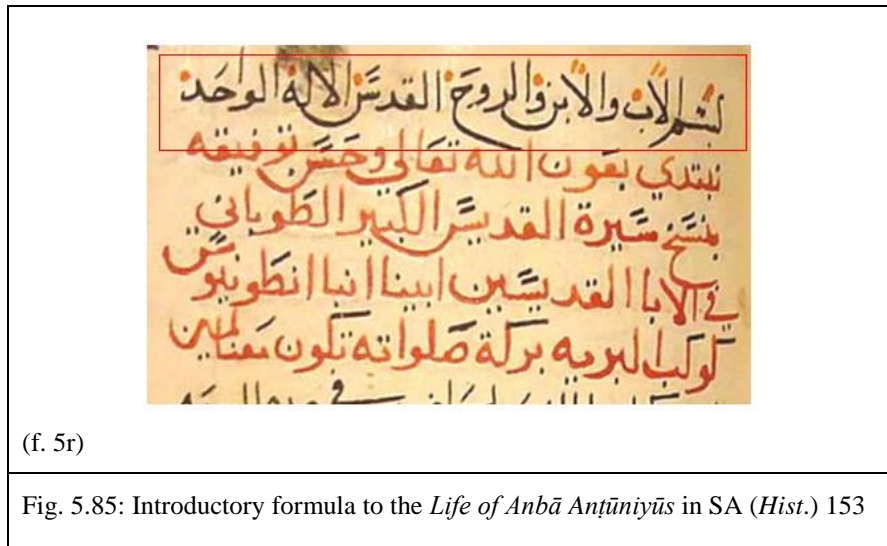 بسم الاب والابن والروح القدس الالة الواحد
نبتدي بعون الله تعالي وحسن توفيقه
بنسخ سيرة القديس الكبير الطوباني
في الابا القديسين ابينا انبا انطونيوس
كوكب البريه بركة صلواته تكون معنا امين
(f. 5r)
Fig. 5.85: Introductory formula to the Life of Anbā Anṭūniyūs in SA (Hist.) 153